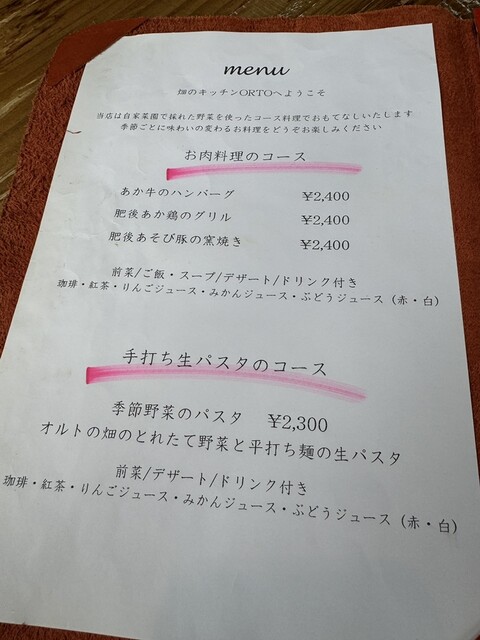 menu
畑のキッチンORTOへようこそ
当店は自家菜園で採れた野菜を使ったコース料理でおもてなしいたします
季節ごとに味わいの変わるお料理をどうぞお楽しみください
お肉料理のコース
あか牛のハンバーグ ¥2,400
肥後あか鶏のグリル ¥2,400
肥後あそび豚の窯焼き ¥2,400
前菜/ご飯・スープ/デザート/ドリンク付き
珈琲・紅茶・りんごジュース・みかんジュース・ぶどうジュース（赤・白）
手打ち生パスタのコース
季節野菜のパスタ ¥2,300
オルトの畑のとれたて野菜と平打ち麺の生パスタ
前菜/デザート/ドリンク付き
珈琲・紅茶・りんごジュース・みかんジュース・ぶどうジュース（赤・白）